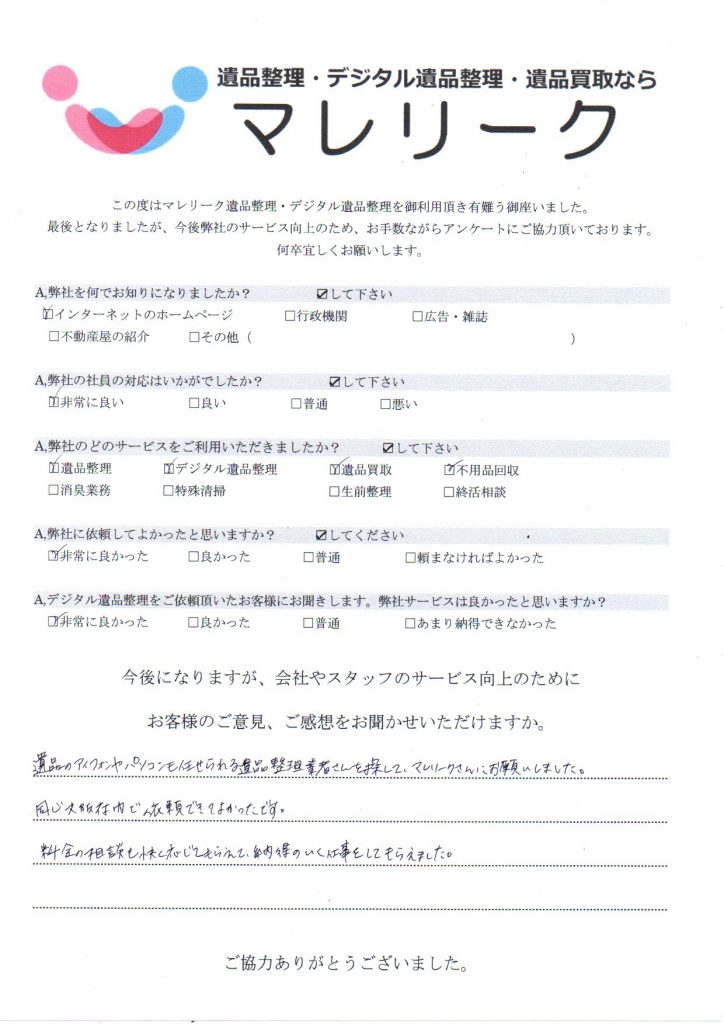 遺品整理・デジタル遺品整理・遺品買取なら
マレリーク
この度はマレリーク遺品整理・デジタル遺品整理を御利用頂き有難う御座いました。
最後となりましたが、今後弊社のサービス向上のため、お手数ながらアンケートにご協力頂いております。
何卒宜しくお願いします。
A,弊社を何でお知りになりましたか？ ☑して下さい
☑インターネットのホームページ □行政機関 □広告・雑誌
□不動産屋の紹介 □その他（ ）
A,弊社の社員の対応はいかがでしたか？ ☑して下さい
☑非常に良い □良い □普通 □悪い
A,弊社のどのサービスをご利用いただきましたか？ ☑して下さい
☑遺品整理 ☑デジタル遺品整理 ☑遺品買取 ☑不用品回収
□消臭業務 □特殊清掃 □生前整理 □終活相談
A,弊社に依頼してよかったと思いますか？ ☑してください
☑非常に良かった □良かった □普通 □頼まなければよかった
A,デジタル遺品整理をご依頼頂いたお客様にお聞きします。弊社サービスは良かったと思いますか？
☑非常に良かった □良かった □普通 □あまり納得できなかった
今後になりますが、会社やスタッフのサービス向上のために
お客様のご意見、ご感想をお聞かせいただけますか。
遺品のアイフォンやパソコンも任せられる遺品整理業者さんを探して、マレリークさんにお願いしました。
同じ大阪府内で依頼できてよかったです。
料金の相談も快く応じてもらえて、納得のいく仕事をしてもらえました。
ご協力ありがとうございました。